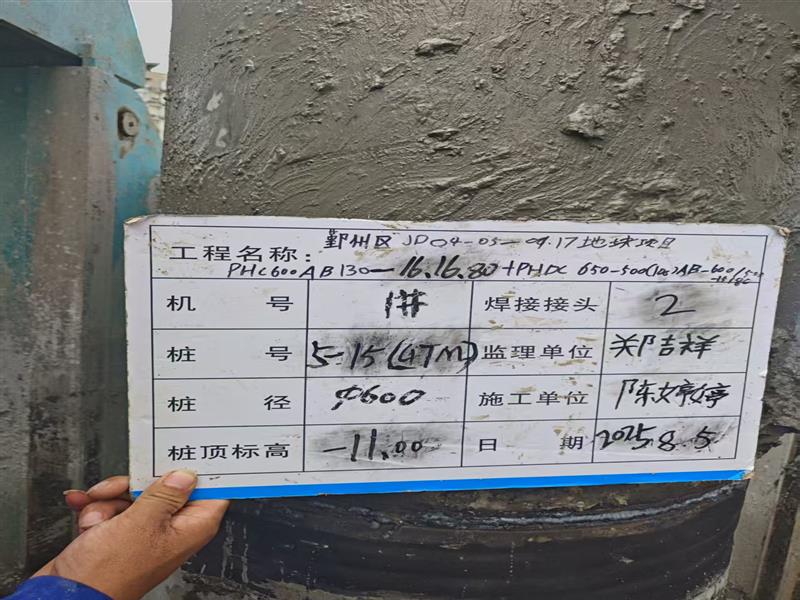 工程名称: 鄞州区JD04-05-09.17地块项目
PHC600AB130-16.16.80+PHDC 650-500(100)AB-600/500
机 号 1# 焊接接头 2
桩 号 5-15(4TM) 监理单位 郑吉祥
桩 径 φ600 施工单位 陈婷婷
桩顶标高 -11.00 日 期 2025.8.5